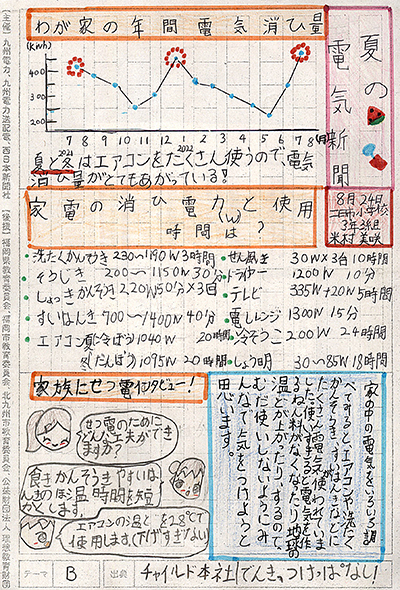 夏の
電気新聞
わが家の年間電気消ひ量
(kwh)
400
300
200
7 8 9 10 11 12 1 2 3 4 5 6 7 8 (月)
2021
2022
夏と冬はエアコンをたくさん使うので、電気
消ひ量がとてもあがっている!
8月24日
3年3組
米村美咲
家電の消ひ電力(w)と使用
時間は?
・洗たくかんそうき 230〜1190W 3時間
・そうじき 200〜1150W 30分
・しょっきかんそうき 220W 50分×3回
・すいはんき 700〜1400W 40分
・エアコン 夏(冷ぼう) 1040W 20時間
冬(だんぼう) 1095W 20時間
・せん風き 30W×3台 10時間
・ドライヤー 1200W 10分
・テレビ 335W+20W 5時間
・電しレンジ 1300W 15分
・冷ぞうこ 200W 24時間
・しょう明 30〜85W 18時間
家族にせつ電インタビュー!
せつ電のために
どんな工夫ができ
ますか?
食きかんそうきやすいは
んきのほ温時間を短
かくします。
エアコンの温どを28℃で
使用します(下げすぎない)
家の中の電気をいろいろ調
べてみると、エアコンが、洗たく
たくさん電気使われていま
した。使いすぎると電気を作
るねん料がなくなったり、地球の
温どが上がったりするので、
むだ使いしないようにみ
んなで気をつけようと
思います。
テーマ B 出典 チャイルド本社「でんきのつけっぱなし!
【主催】九州電力、九州電力送配電、西日本新聞社 【後援】福岡県教育委員会、福岡市教育委員会、北九州市教育委員会、公益財団法人 理想教育財団